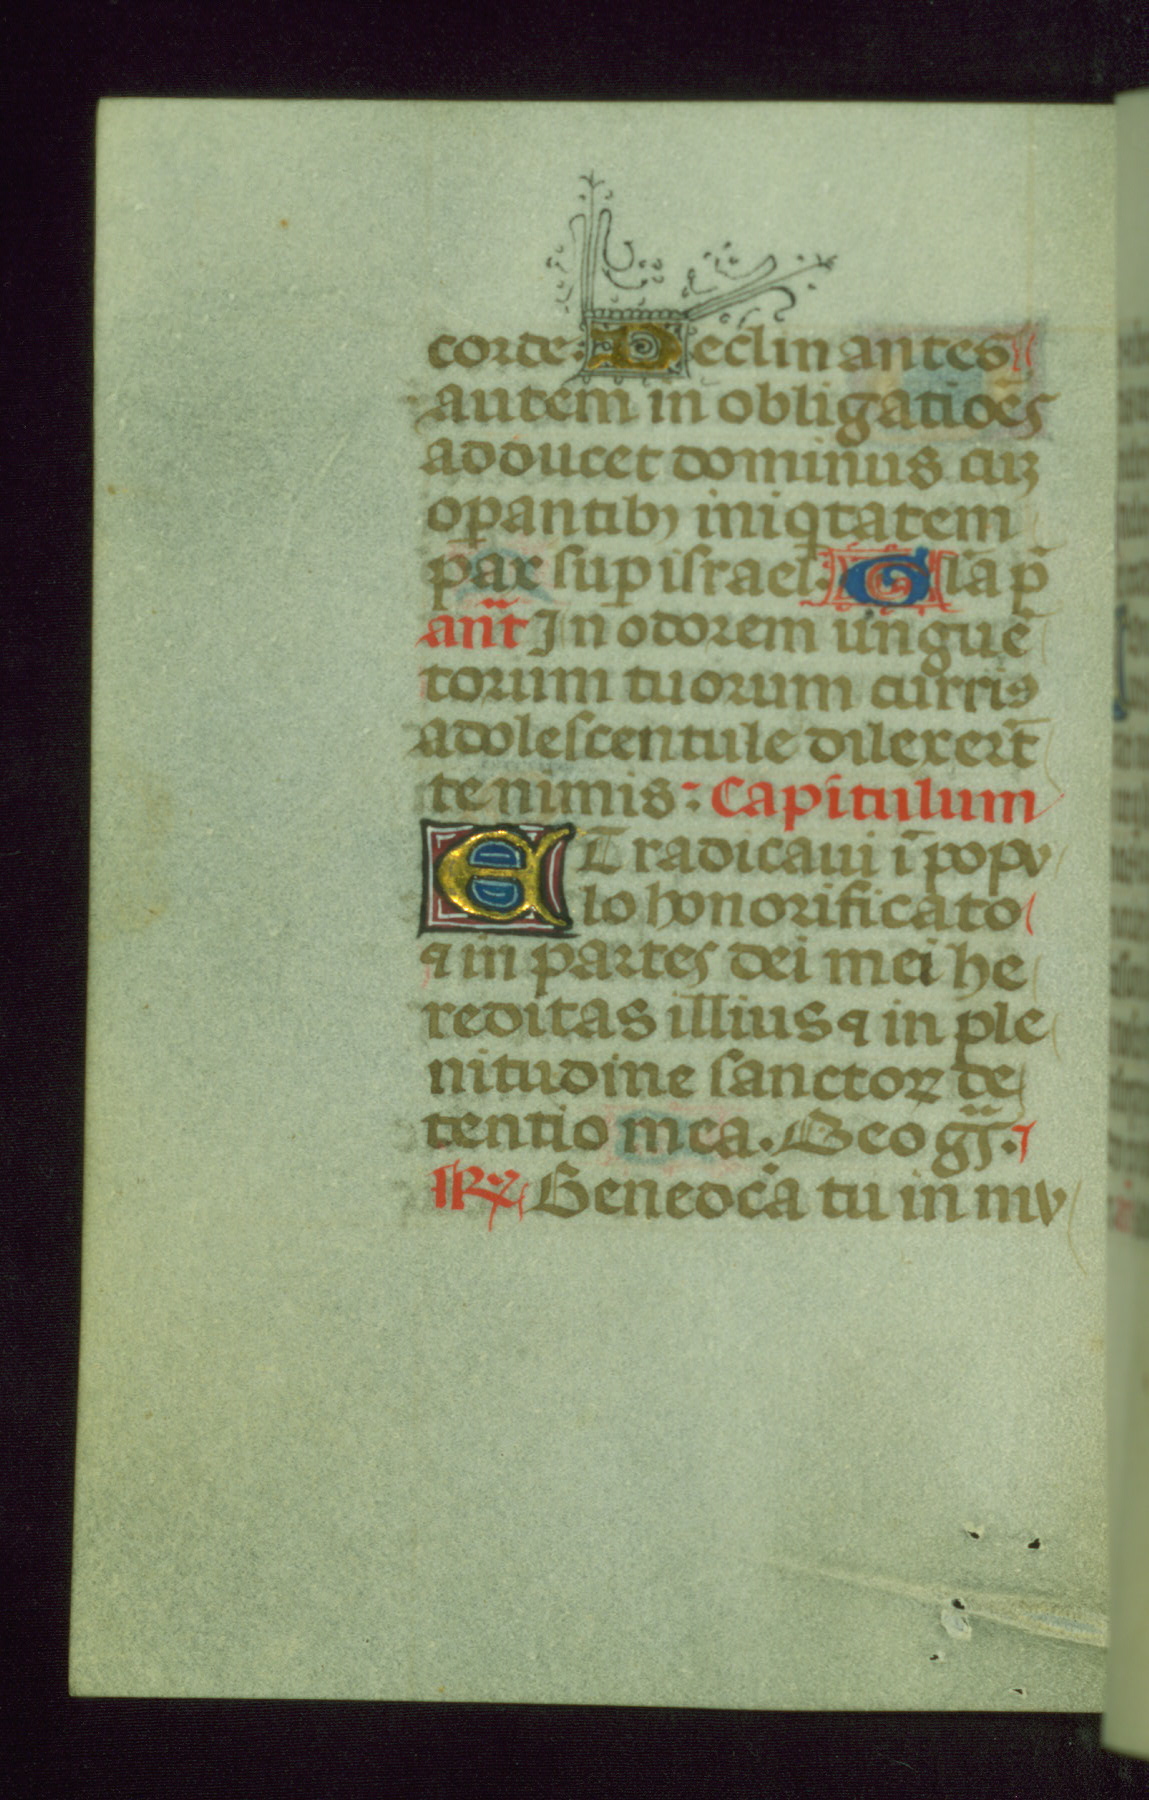 corde. Declinantes
autem in obligatiões
adducet dominus cuꝫ
oꝑantibꝫ iniqͥtatem
pax suꝑ israel. Gl̃a p̃
an̄t In odorem unguē
torum tuorum curriꝰ
adolescentule dilexer̄t
te nimis: Capitulum
ET radicaui ī popu
lo honorificato
⁊ in partes dei mei he
reditas illius ⁊ in ple
nitudine sanctoꝝ de
tentio mea. Deo gr̄.
R̃ Benedc̃a tu in mu